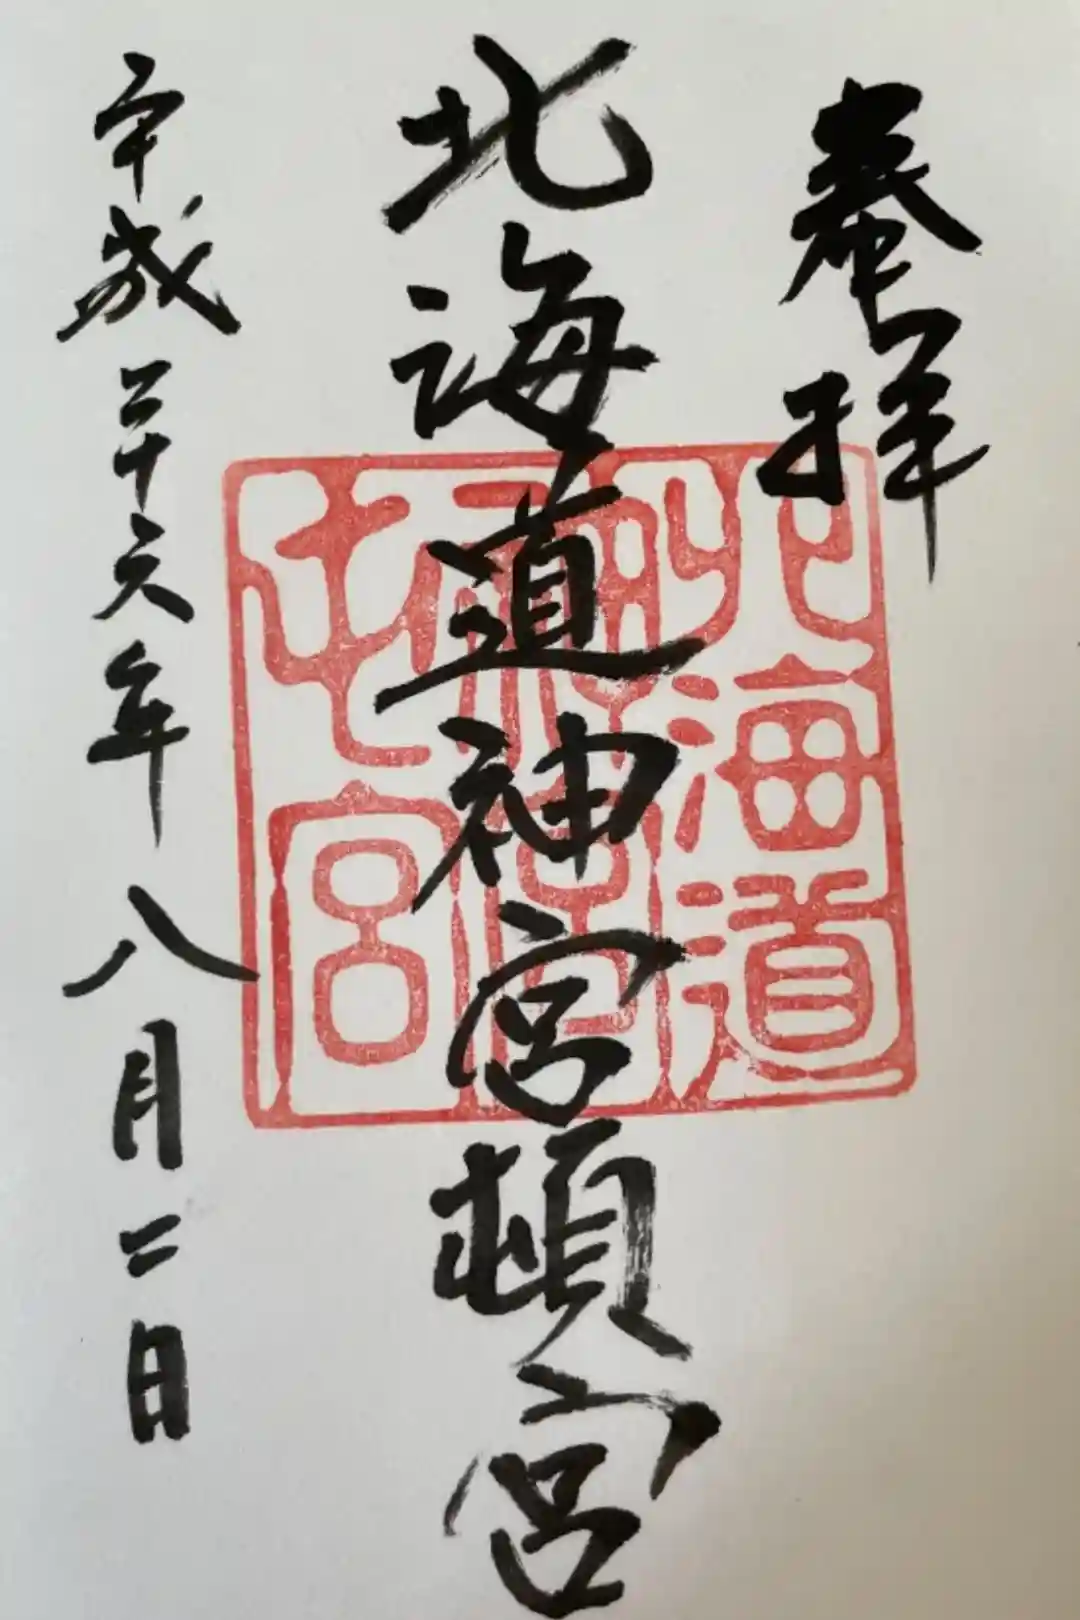 奉拝
北海道神宮頓宮
平成二十六年八月二日
北海道
神宮